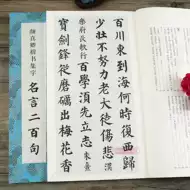 百川東到海何時復西歸
少壯不努力老大徒傷悲 漢
樂府長歌行 百學須先立志 朱熹
寶劍鋒從磨礪出梅花香
颜真卿楷书集字
名言二百句